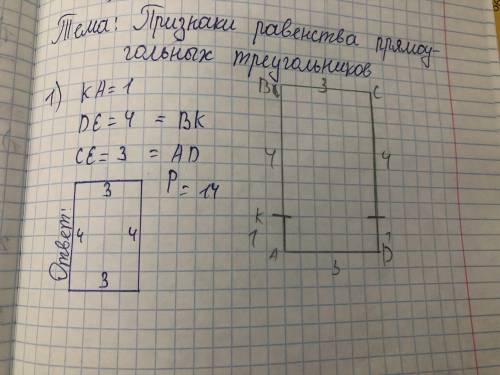 Тема: Признаки равенства прямоу-
гольных треугольников
1) KA = 1
DE = 4 = BK
CE = 3 = AD
P = 14
Ответ:
3
4 4
3
B 3 C
4 4
K
1 1
A D
3